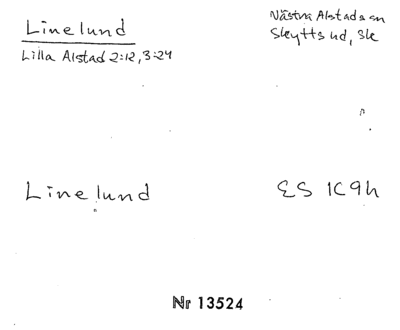 Linelund
Västra Alstads sn
Skytts hd, Sk
Lilla Alstad 2:12, 3:24
Linelund
ES 1C9h
Nr 13524